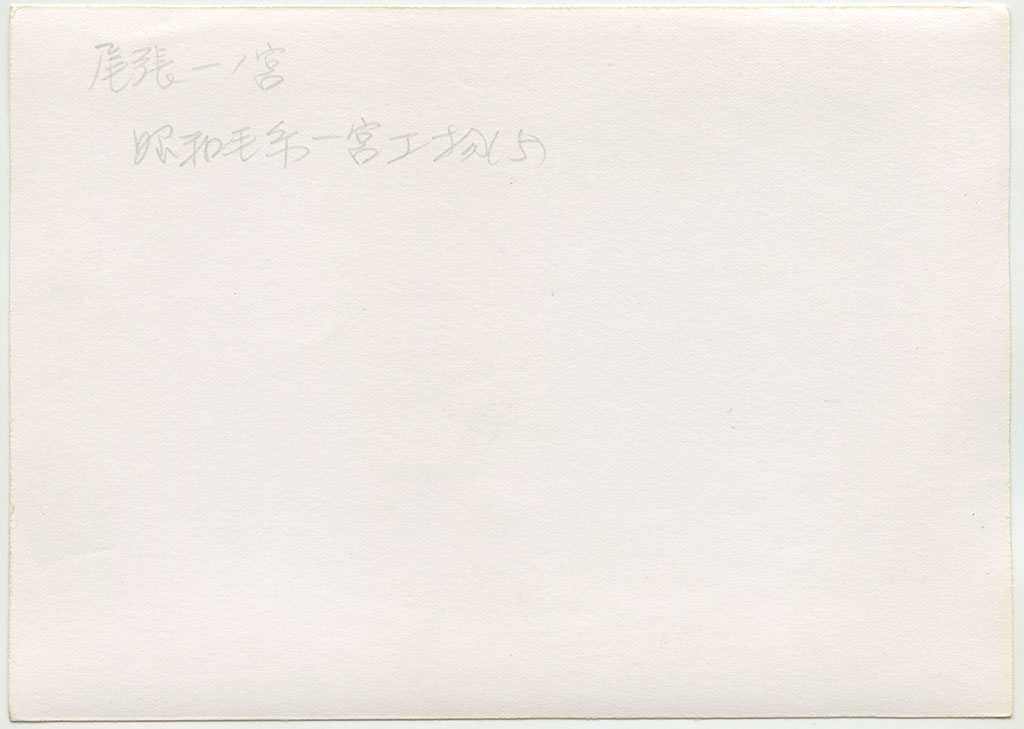 尾張一ノ宮
昭和毛糸一宮工場(5)